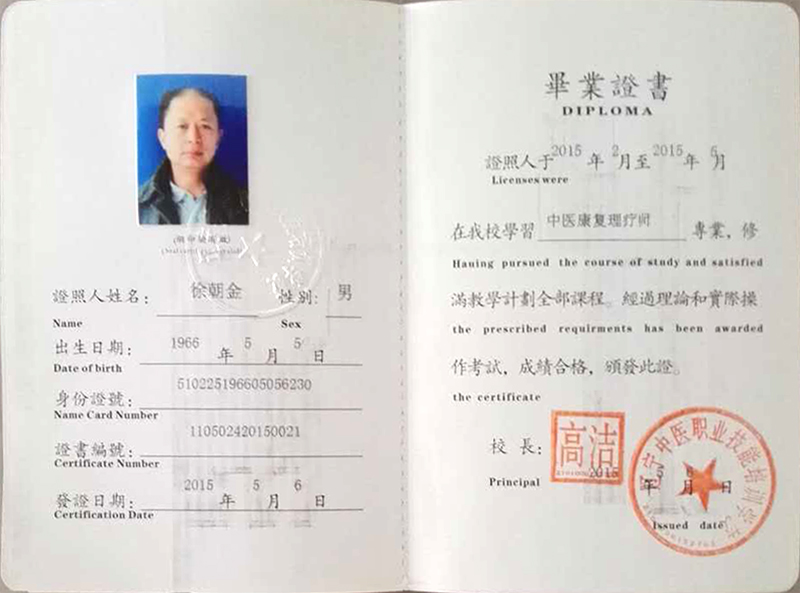 證照人姓名: 徐朝金 性别: 男
Name Sex
出生日期: 1966 年 5 月 5 日
Date of birth
身份證號: 510225196605056230
Name Card Number
證書編號: 110502420150021
Certificate Number
發證日期: 2015 年 5 月 6 日
Certification Date
畢業證書
DIPLOMA
證照人于 2015 年 2 月至 2015 年 5 月
Licenses were
在我校學習 中医康复理疗师 專業，修
Hauing pursued the course of study and satisfied
滿教學計劃全部課程。經過理論和實際操
the prescribed requirments has been awarded
作考試，成績合格，頒發此證。
the certificate
校長: 高洁
Principal
2015 年 5 月 6 日
中医职业技能培训学校
Issued date